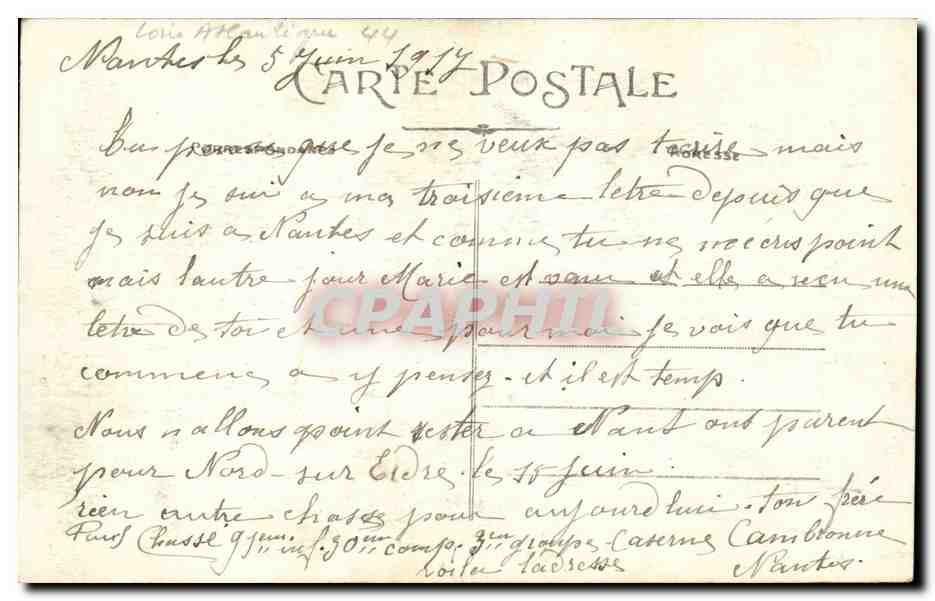 Loire Atlantique 44
Nantes le 5 Juin 1917
CARTE POSTALE
CORRESPONDANCE
ADRESSE
Tu penses que je ne veux pas mais
non je sui a ma troisieme letre depuis que
je suis a Nantes et comme tu ne mécris point
mais lautre jour Marie est venu et elle a recu une
letre de toi et une pour moi je vois que tu
commence a y penser. et il est temp.
CPAPHIL
Nous nallons point rester a Nant ont parent
pour Nord-sur Erdre. le 15 Juin
rien autre chose pour aujourdhui. ton frére
Chasse 9 eme inf. 30 eme comp. 3 eme groupe Caserne Cambronne
voila ladresse Nantes.